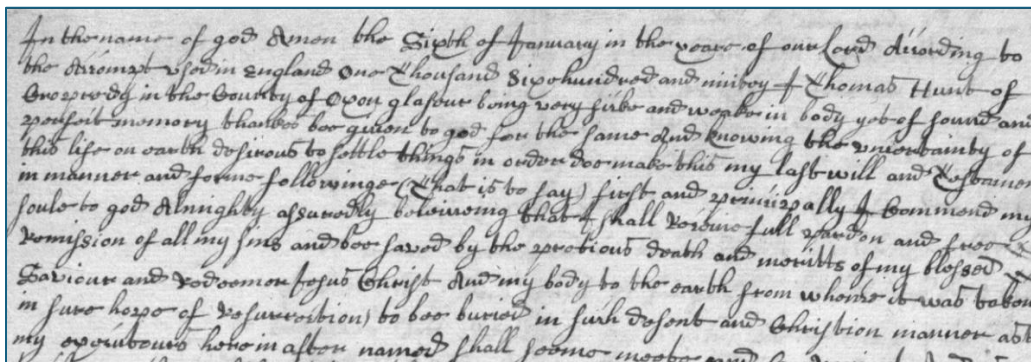 In the name of god Amen the Sixth of January in the yeare of our Lord According to
the Accompt used in England One Thousand Sixe hundred and ninty I Thomas Hunt of
Cropredy in the County of Oxon glasour being very sicke and weake in body yet of sound and
perfect memory thankes bee given to god for the same And knowing the uncertainty of
this life on earth desirous to settle things in order doe make this my last will and Testame
in manner and forme followinge (That is to say) first and principally I Commend my
soule to god Almighty assuredly beleiveing that I shall Receive full pardon and free
Remission of all my sins and bee saved by the pretious death and meritts of my blessed
Saviour and Redeemer Jesus Christ And my body to the earth from whence it was taken
in sure hope of resurrection) to bee buried in such desent and Christion manner as t
my executours herein after named shall seeme meete and